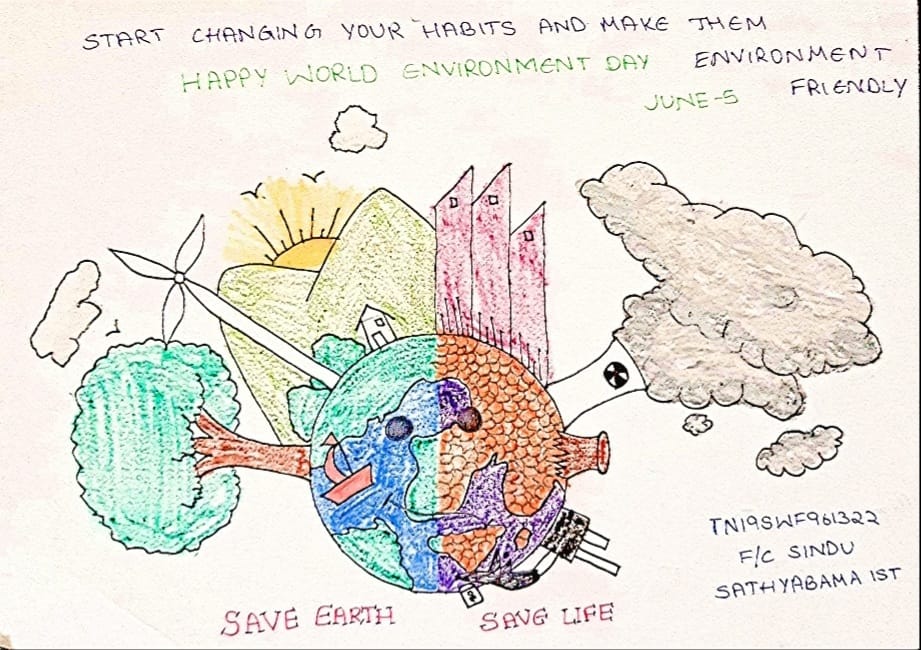 START CHANGING YOUR HABITS AND MAKE THEM
ENVIRONMENT
FRIENDLY
HAPPY WORLD ENVIRONMENT DAY
JUNE-5
TN19SWF961322
F/C SINDU
SATHYABAMA IST
SAVE EARTH SAVE LIFE